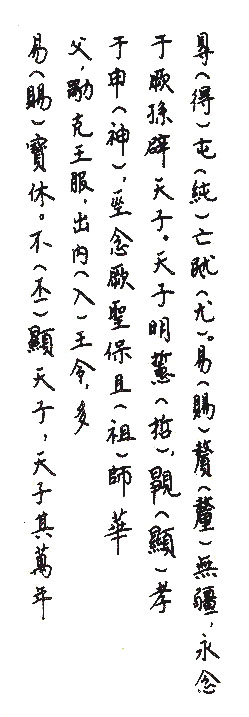 㝵(得)屯(純)亡(尤)。易(賜)(釐)無疆,永念
于厥孫辟天子。天子明(哲),(顯)孝
于申(神),巠念厥聖保且(祖)師華
父,克王服,出內(入)王令,多
易(賜)寶休。不(丕)顯天子,天子其萬年